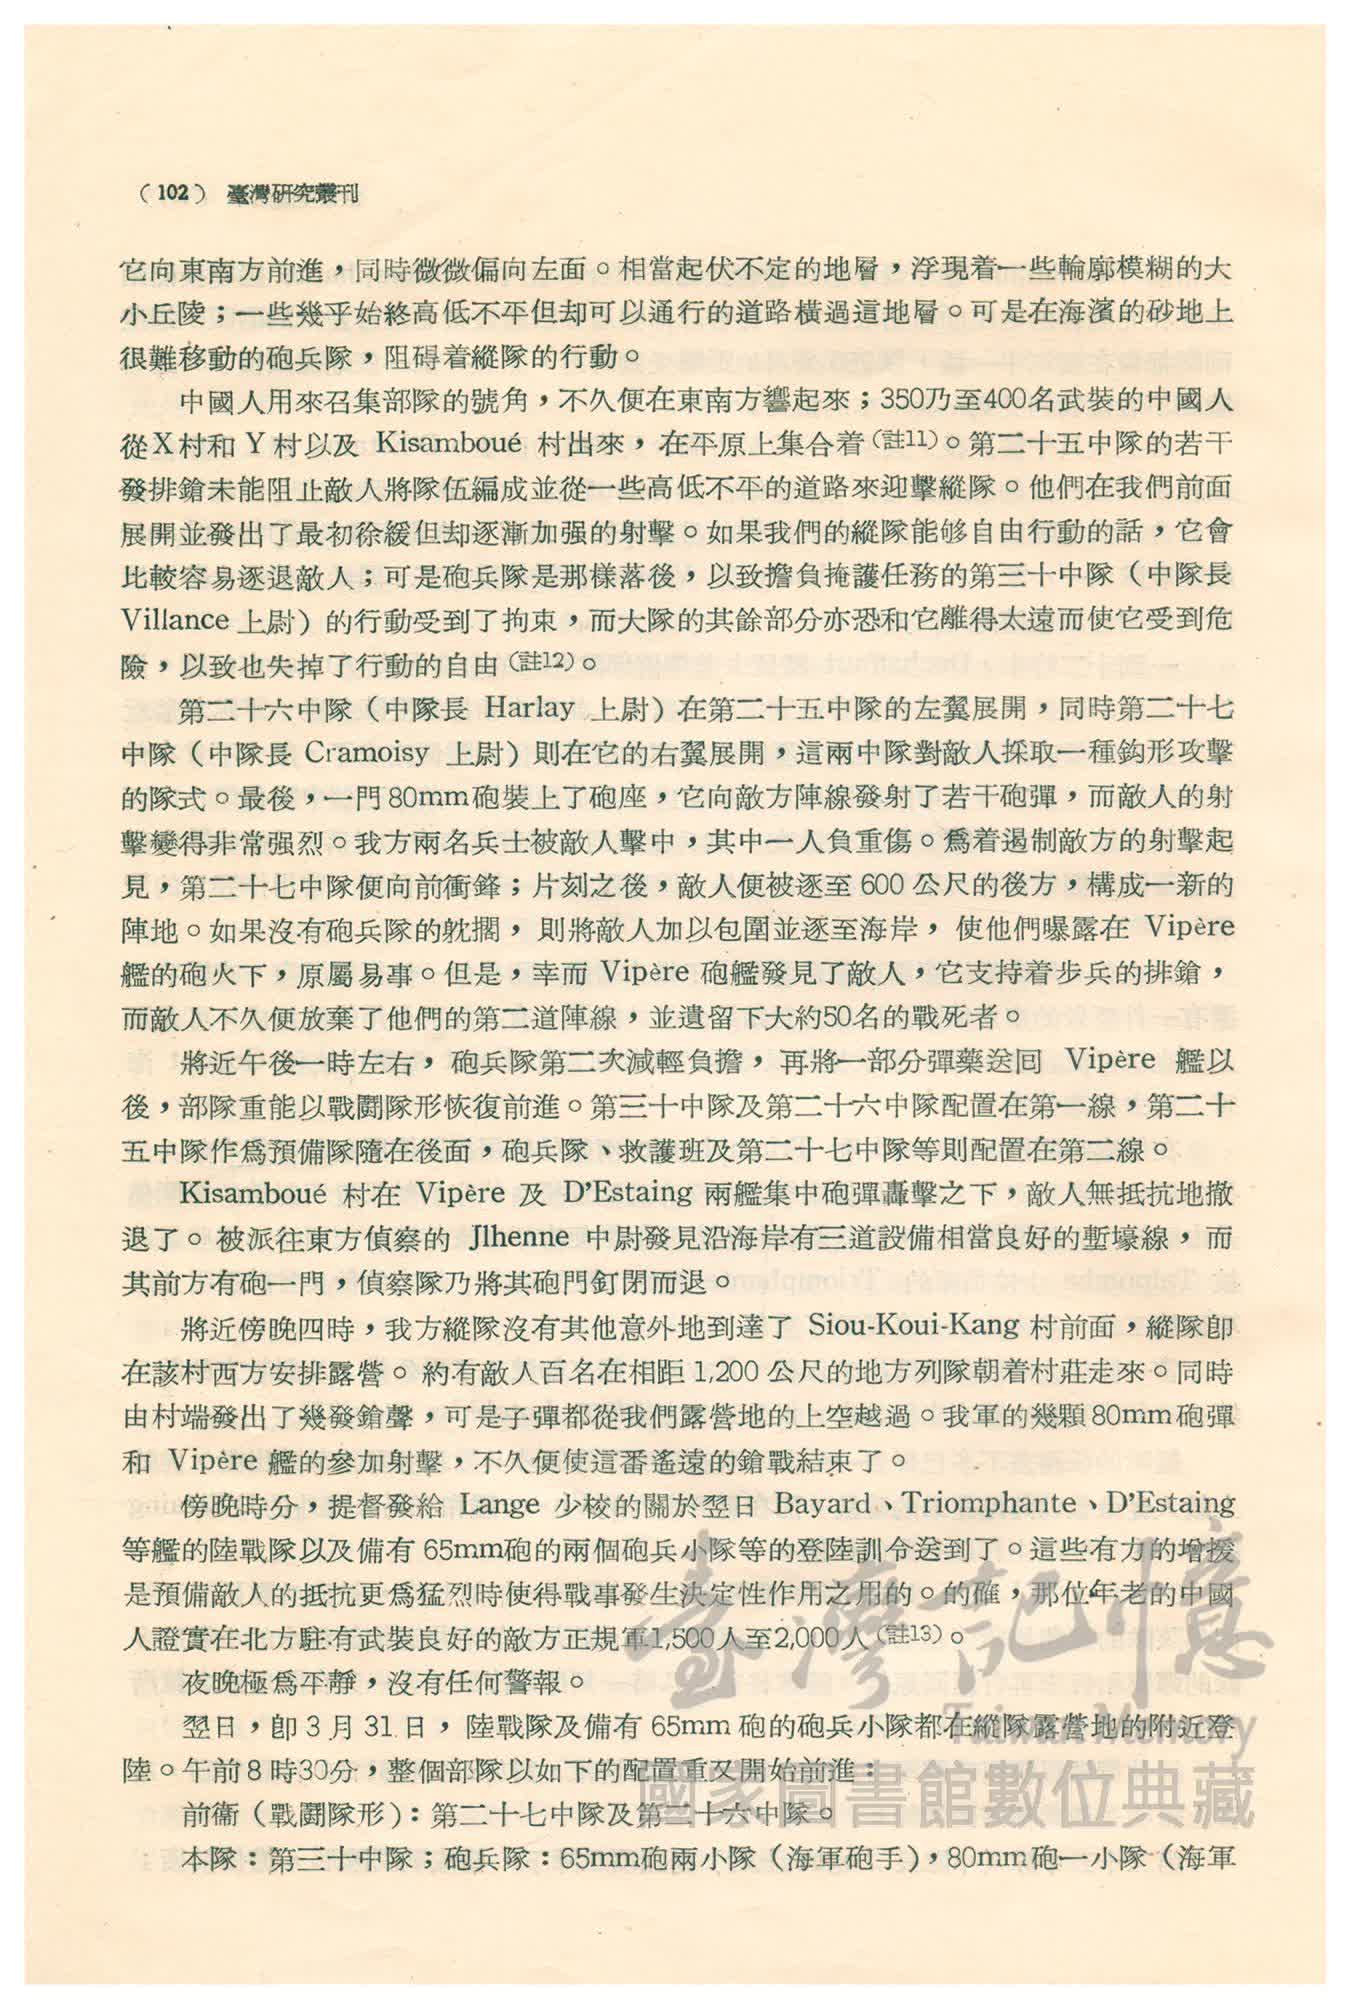 （102） 臺灣研究叢刊
它向東南方前進，同時微微偏向左面。相當起伏不定的地層，浮現着一些輪廓模糊的大
小丘陵；一些幾乎始終高低不平但却可以通行的道路橫過這地層。可是在海濱的砂地上
很難移動的砲兵隊，阻碍着縱隊的行動。
中國人用來召集部隊的號角，不久便在東南方響起來；350乃至400名武裝的中國人
從X村和 Y 村以及 Kisamboué 村出來，在平原上集合着（註11）。第二十五中隊的若干
發排鎗未能阻止敵人將隊伍編成並從一些高低不平的道路來迎擊縱隊。他們在我們前面
展開並發出了最初徐緩但却逐漸加强的射擊。如果我們的縱隊能够自由行動的話，它會
比較容易逐退敵人；可是砲兵隊是那樣落後，以致擔負掩護任務的第三十中隊（中隊長
Villance 上尉）的行動受到了拘束，而大隊的其餘部分亦恐和它離得太遠而使它受到危
險，以致也失掉了行動的自由（註12）。
第二十六中隊（中隊長 Harlay 上尉）在第二十五中隊的左翼展開，同時第二十七
中隊（中隊長 Cramoisy 上尉）則在它的右翼展開，這兩中隊對敵人採取一種鈎形攻擊
的隊式。最後，一門80mm砲裝上了砲座，它向敵方陣線發射了若干砲彈，而敵人的射
擊變得非常强烈。我方兩名兵士被敵人擊中，其中一人負重傷。爲着遏制敵方的射擊起
見，第二十七中隊便向前衝鋒；片刻之後，敵人便被逐至 600 公尺的後方，構成一新的
陣地。如果沒有砲兵隊的躭擱， 則將敵人加以包圍並逐至海岸， 使他們曝露在 Vipère
艦的砲火下，原屬易事。但是，幸而 Vipère 砲艦發見了敵人，它支持着步兵的排鎗，
而敵人不久便放棄了他們的第二道陣線，並遺留下大約50名的戰死者。
將近午後一時左右， 砲兵隊第二次減輕負擔， 再將一部分彈藥送囘 Vipère 艦以
後，部隊重能以戰鬪隊形恢復前進。第三十中隊及第二十六中隊配置在第一線，第二十
五中隊作爲預備隊隨在後面，砲兵隊、救護班及第二十七中隊等則配置在第二線。
Kisamboué 村在 Vipère 及 D'Estaing 兩艦集中砲彈轟擊之下，敵人無抵抗地撤
退了。被派往東方偵察的 Jlhenne 中尉發見沿海岸有三道設備相當良好的塹壕線， 而
其前方有砲一門，偵察隊乃將其砲門釘閉而退。
將近傍晚四時，我方縱隊沒有其他意外地到達了 Siou-Koui-Kang 村前面，縱隊卽
在該村西方安排露營。約有敵人百名在相距 1,200 公尺的地方列隊朝着村莊走來。同時
由村端發出了幾發鎗聲，可是子彈都從我們露營地的上空越過。我軍的幾顆80mm砲彈
和 Vipère 艦的參加射擊，不久便使這番遙遠的鎗戰結束了。
傍晚時分，提督發給 Lange 少校的關於翌日 Bayard、Triomphante、D'Estaing
等艦的陸戰隊以及備有 65mm砲的兩個砲兵小隊等的登陸訓令送到了。這些有力的增援
是預備敵人的抵抗更爲猛烈時使得戰事發生決定性作用之用的。的確，那位年老的中國
人證實在北方駐有武裝良好的敵方正規軍1,500人至2,000人（註13）。
夜晚極爲平靜，沒有任何警報。
翌日，卽 3 月 31 日， 陸戰隊及備有 65mm 砲的砲兵小隊都在縱隊露營地的附近登
陸。午前8時30分，整個部隊以如下的配置重又開始前進：
前衞（戰鬪隊形）：第二十七中隊及第二十六中隊。
本隊：第三十中隊；砲兵隊：65mm砲兩小隊（海軍砲手），80mm砲一小隊（海軍
臺灣記憶
Taiwan Memory
國家圖書館數位典藏